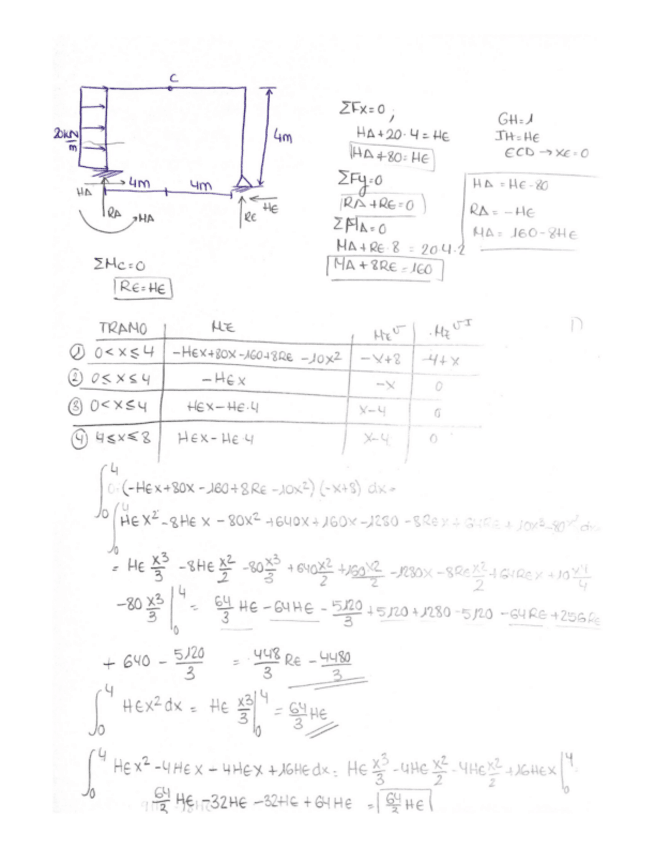 C
20kN/m
4m
HA
4m 4m
RA MA RE HE
ΣFx=0;
HA+20·4=HE
HA+80=HE
ΣFy=0
RA+RE=0
ΣMA=0
MA+RE·8=20·4·2
MA+8RE=160
GH=1
ECD→XE=0
HA=HE-80
RA=-HE
MA=160-8HE
ΣMc=0
RE=HE
TRAMO
① 0<x≤4 -HEx+80x-160+8RE-10x² -x+8 -4+x
② 0≤x≤4 -HEx -x 0
③ 0<x≤4 HEx-HE·4 x-4 0
④ 4≤x≤8 HEx-HE·4 x-4 0
∫₀⁴ (-HEx+80x-160+8RE-10x²)(-x+8)dx=
∫₀⁴ HEx²-8HEx-80x²+640x+160x-1280-8REx+64RE+10x³-80x²dx
= HE x³/3 -8HE x²/2 -80 x³/3 +640 x²/2 +160 x²/2 -1280x-8RE x²/2 +64REx+10 x⁴/4
-80 x³/3 |₀⁴ = 64/3 HE-64HE- 5120/3 +5120+1280-5120-64RE+256RE
+640- 5120/3 = 448/3 RE- 4480/3
∫₀⁴ HEx²dx= HE x³/3 |₀⁴ = 64/3 HE
∫₀⁴ HEx²-4HEx-4HEx+16HEdx= HE x³/3 -4HE x²/2 -4HE x²/2 +16HEx |₀⁴
64/3 HE-32HE-32HE+64HE = 64/3 HE